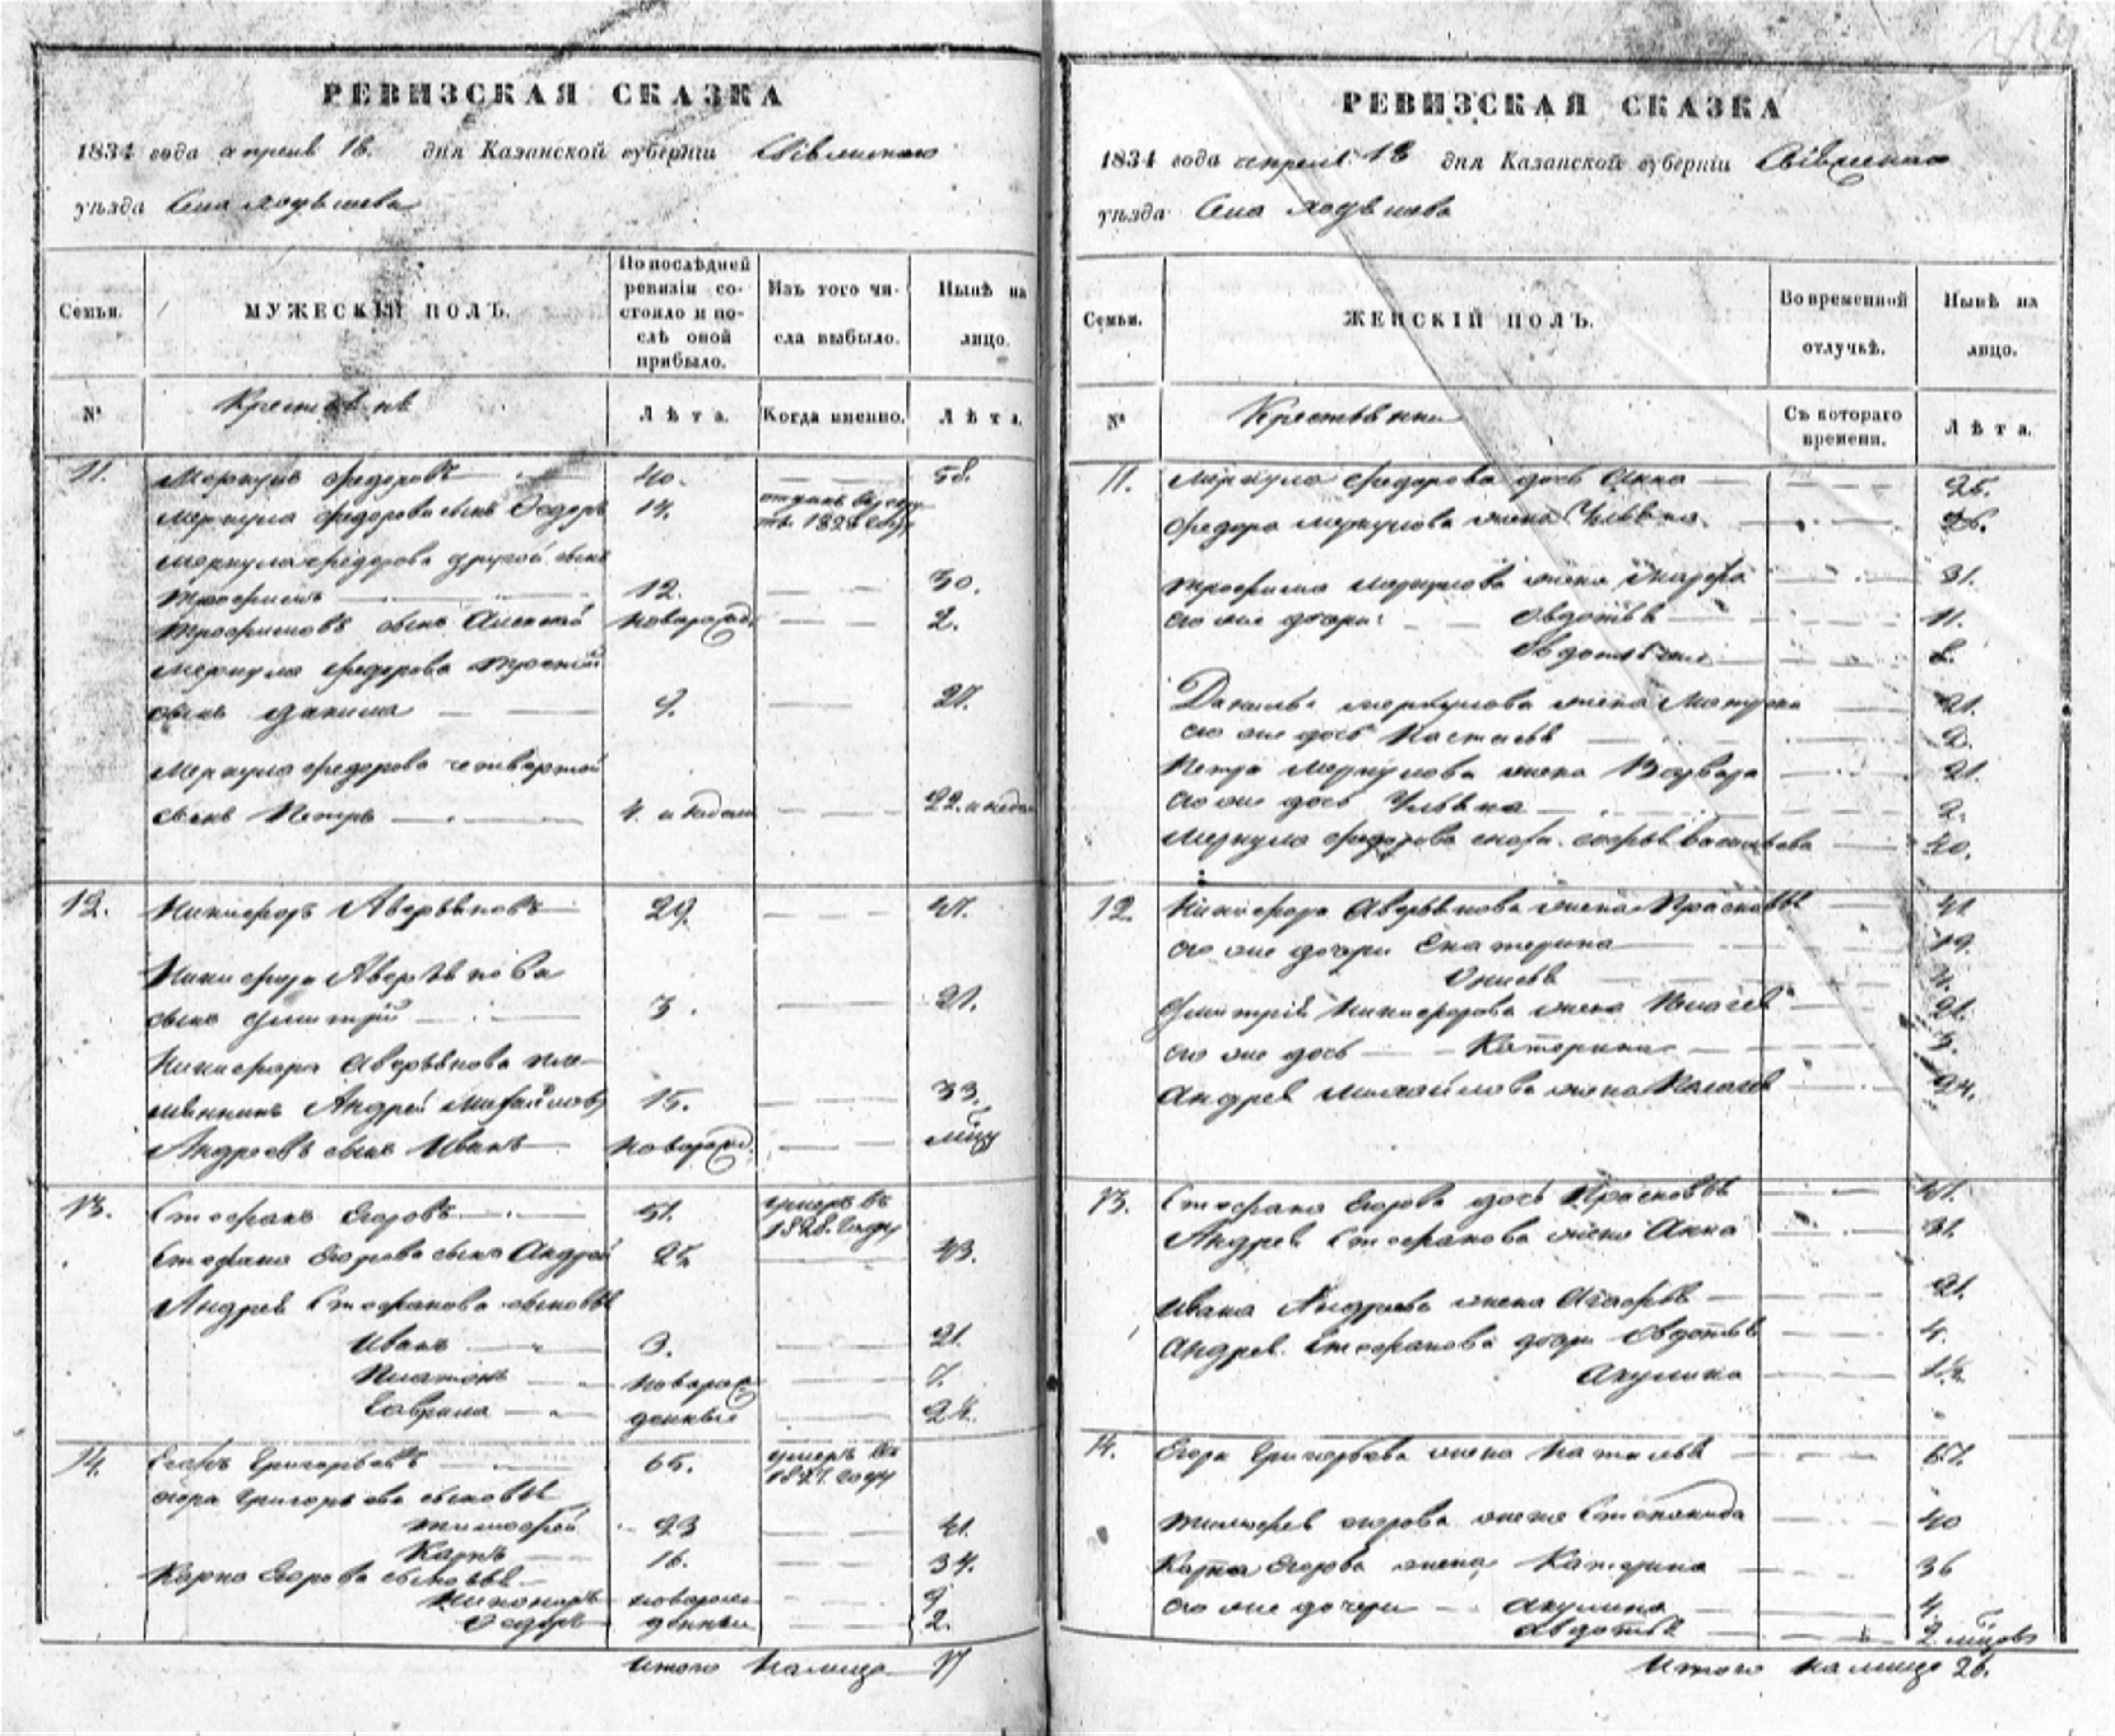 РЕВИЗСКАЯ СКАЗКА
1834 года апреля 18. дня Казанской губернiи Свiяжскаго
уѣзда Села
Семьи.
МУЖЕСКIЙ ПОЛЪ.
По послѣдней
ревизiи со-
стояло и по-
слѣ оной
прибыло.
Изъ того чи-
сла выбыло.
Нынѣ на
лицо.
№
Крестьяне
Лѣта.
Когда именно.
Лѣта.
11. Меркулъ Федоровъ 40. 58.
Меркула Федорова сынъ Федоръ 14. отданъ въ 1828 году
Меркула Федорова другой сынъ
Трофимъ 12. 30.
Трофимовъ сынъ Алексей новорожд. 2.
Меркула Федорова третiй
сынъ Данила 9. 27.
Меркула Федорова четвертой
сынъ Петръ 4. и недели 22. и недел
12. Никифоръ Аверьяновъ 29. 47.
Никифора Аверьянова
сынъ Дмитрiй 3. 21.
Никифора Аверьянова пле-
мянникъ Андрей Михайловъ 15. 33.
Андреевъ сынъ Иванъ новорожд.
13. Стефанъ Егоровъ 51. умеръ въ
1828. году
Стефана Егорова сынъ Андрей 25. 43.
Андрея Стефанова сыновья
Иванъ 3. 21.
Платонъ новорож 7.
Гаврила денные 2½.
14. Егоръ Григорьевъ 65. умеръ въ
1821. году
Егора Григорьева сыновья
Тимофей 23 41.
Карпъ 16. 34.
Карпа Егорова сыновья
Никаноръ новорож 9
Федоръ денные 2.
Итого налицо 17
РЕВИЗСКАЯ СКАЗКА
1834 года апреля 18 дня Казанской губернiи Свiяжскаго
уѣзда Села
Семьи.
ЖЕНСКIЙ ПОЛЪ.
Во временной
отлучкѣ.
Нынѣ на
лицо.
№
Крестьянки
Съ котораго
времени.
Лѣта.
11. Меркула Федорова дочь Анна 25.
Федора Меркулова жена Ульяна 36.
Трофима Меркулова жена Марфа 31.
его же дочери Овдотья 11.
8.
Данилы Меркулова жена Матрена 21.
его же дочь Настасья 2.
Петра Меркулова жена Варвара 21.
его же дочь Ульяна 2.
Меркула Федорова сноха Софья Васильева 40.
12. Никифора Аверьянова жена Прасковья 41
его же дочери Екатерина 19.
Онисья 11.
Дмитрiя Никифорова жена Пелагея 21.
его же дочь Катерина 3.
Андрея Михайлова жена Пелагея 24.
13. Стефана Егорова дочь Прасковья 47.
Андрея Стефанова жена Анна 31.
Ивана Андреева жена Агафья 21.
Андрея Стефанова дочери Овдотья 4.
Акулина 1½.
14. Егора Григорьева жена Наталья 67.
Тимофея Егорова жена Степанида 40
Карпа Егорова жена Катерина 36
его же дочери Акулина 4.
Авдотья 2 мцовъ
Итого налицо 26.